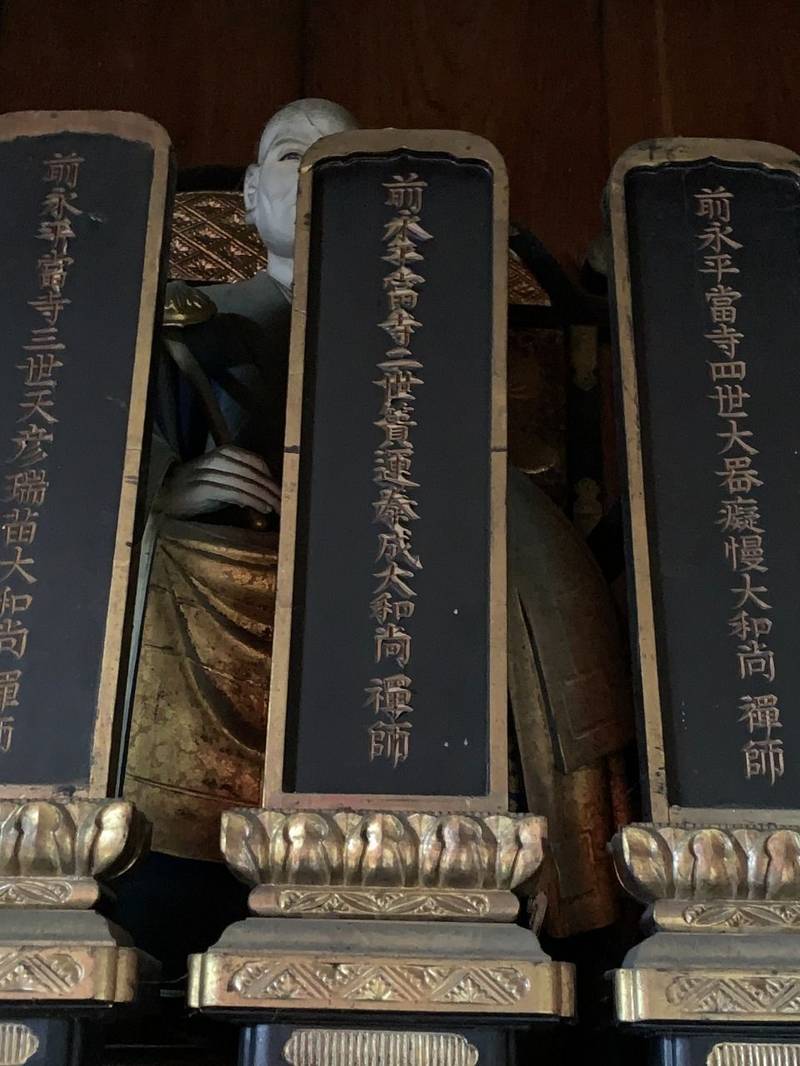 前永平當寺四世大器癡慢大和尚禪師
前永平當寺二世簣運泰成大和尚禪師
前永平當寺三世天彦瑞苗大和尚禪師